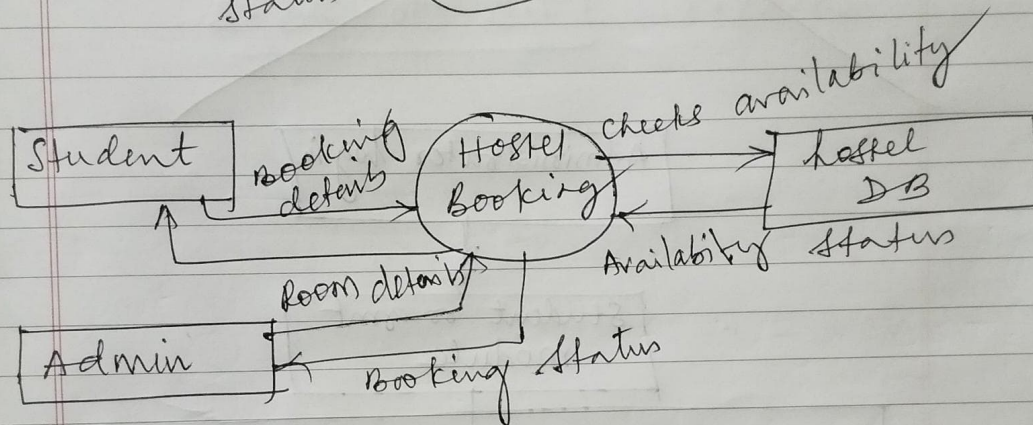 Student
Booking
details
Hostel
Booking
Checks availability
hostel
DB
Availability Status
Room details
Admin
Booking Status